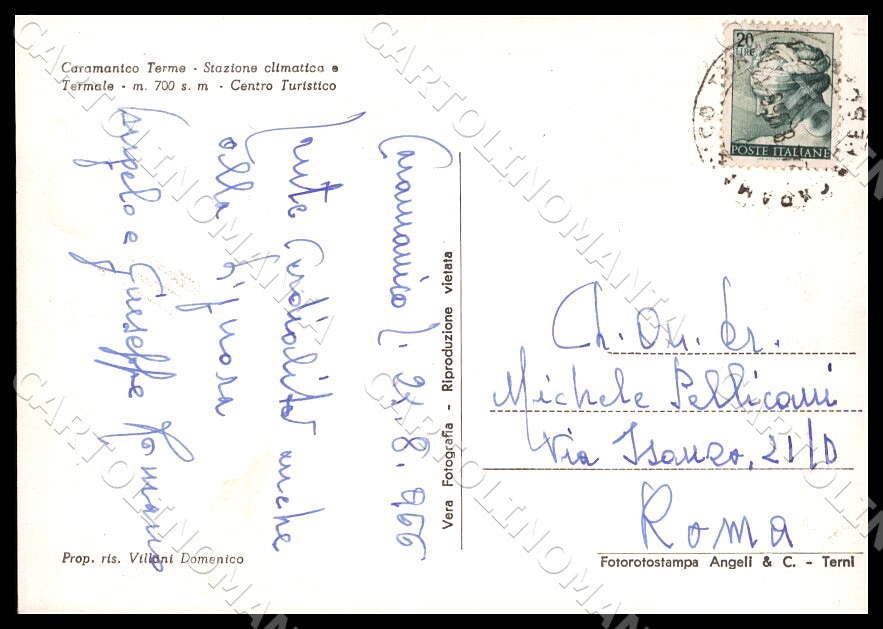 Caramanico Terme - Stazione climatica e
Termale - m. 700 s. m - Centro Turistico
20
LIRE
POSTE ITALIANE
Caramanico li 24.8.966
Tante Cordialità anche
alla Signora
Angelo e Giuseppe Romano
Vera Fotografia - Riproduzione vietata
Michele Pellicani
Via Isonzo, 21/D
Roma
Prop. ris. Villani Domenico
Fotorotostampa Angeli & C. - Terni
CARTOLINOMANIA